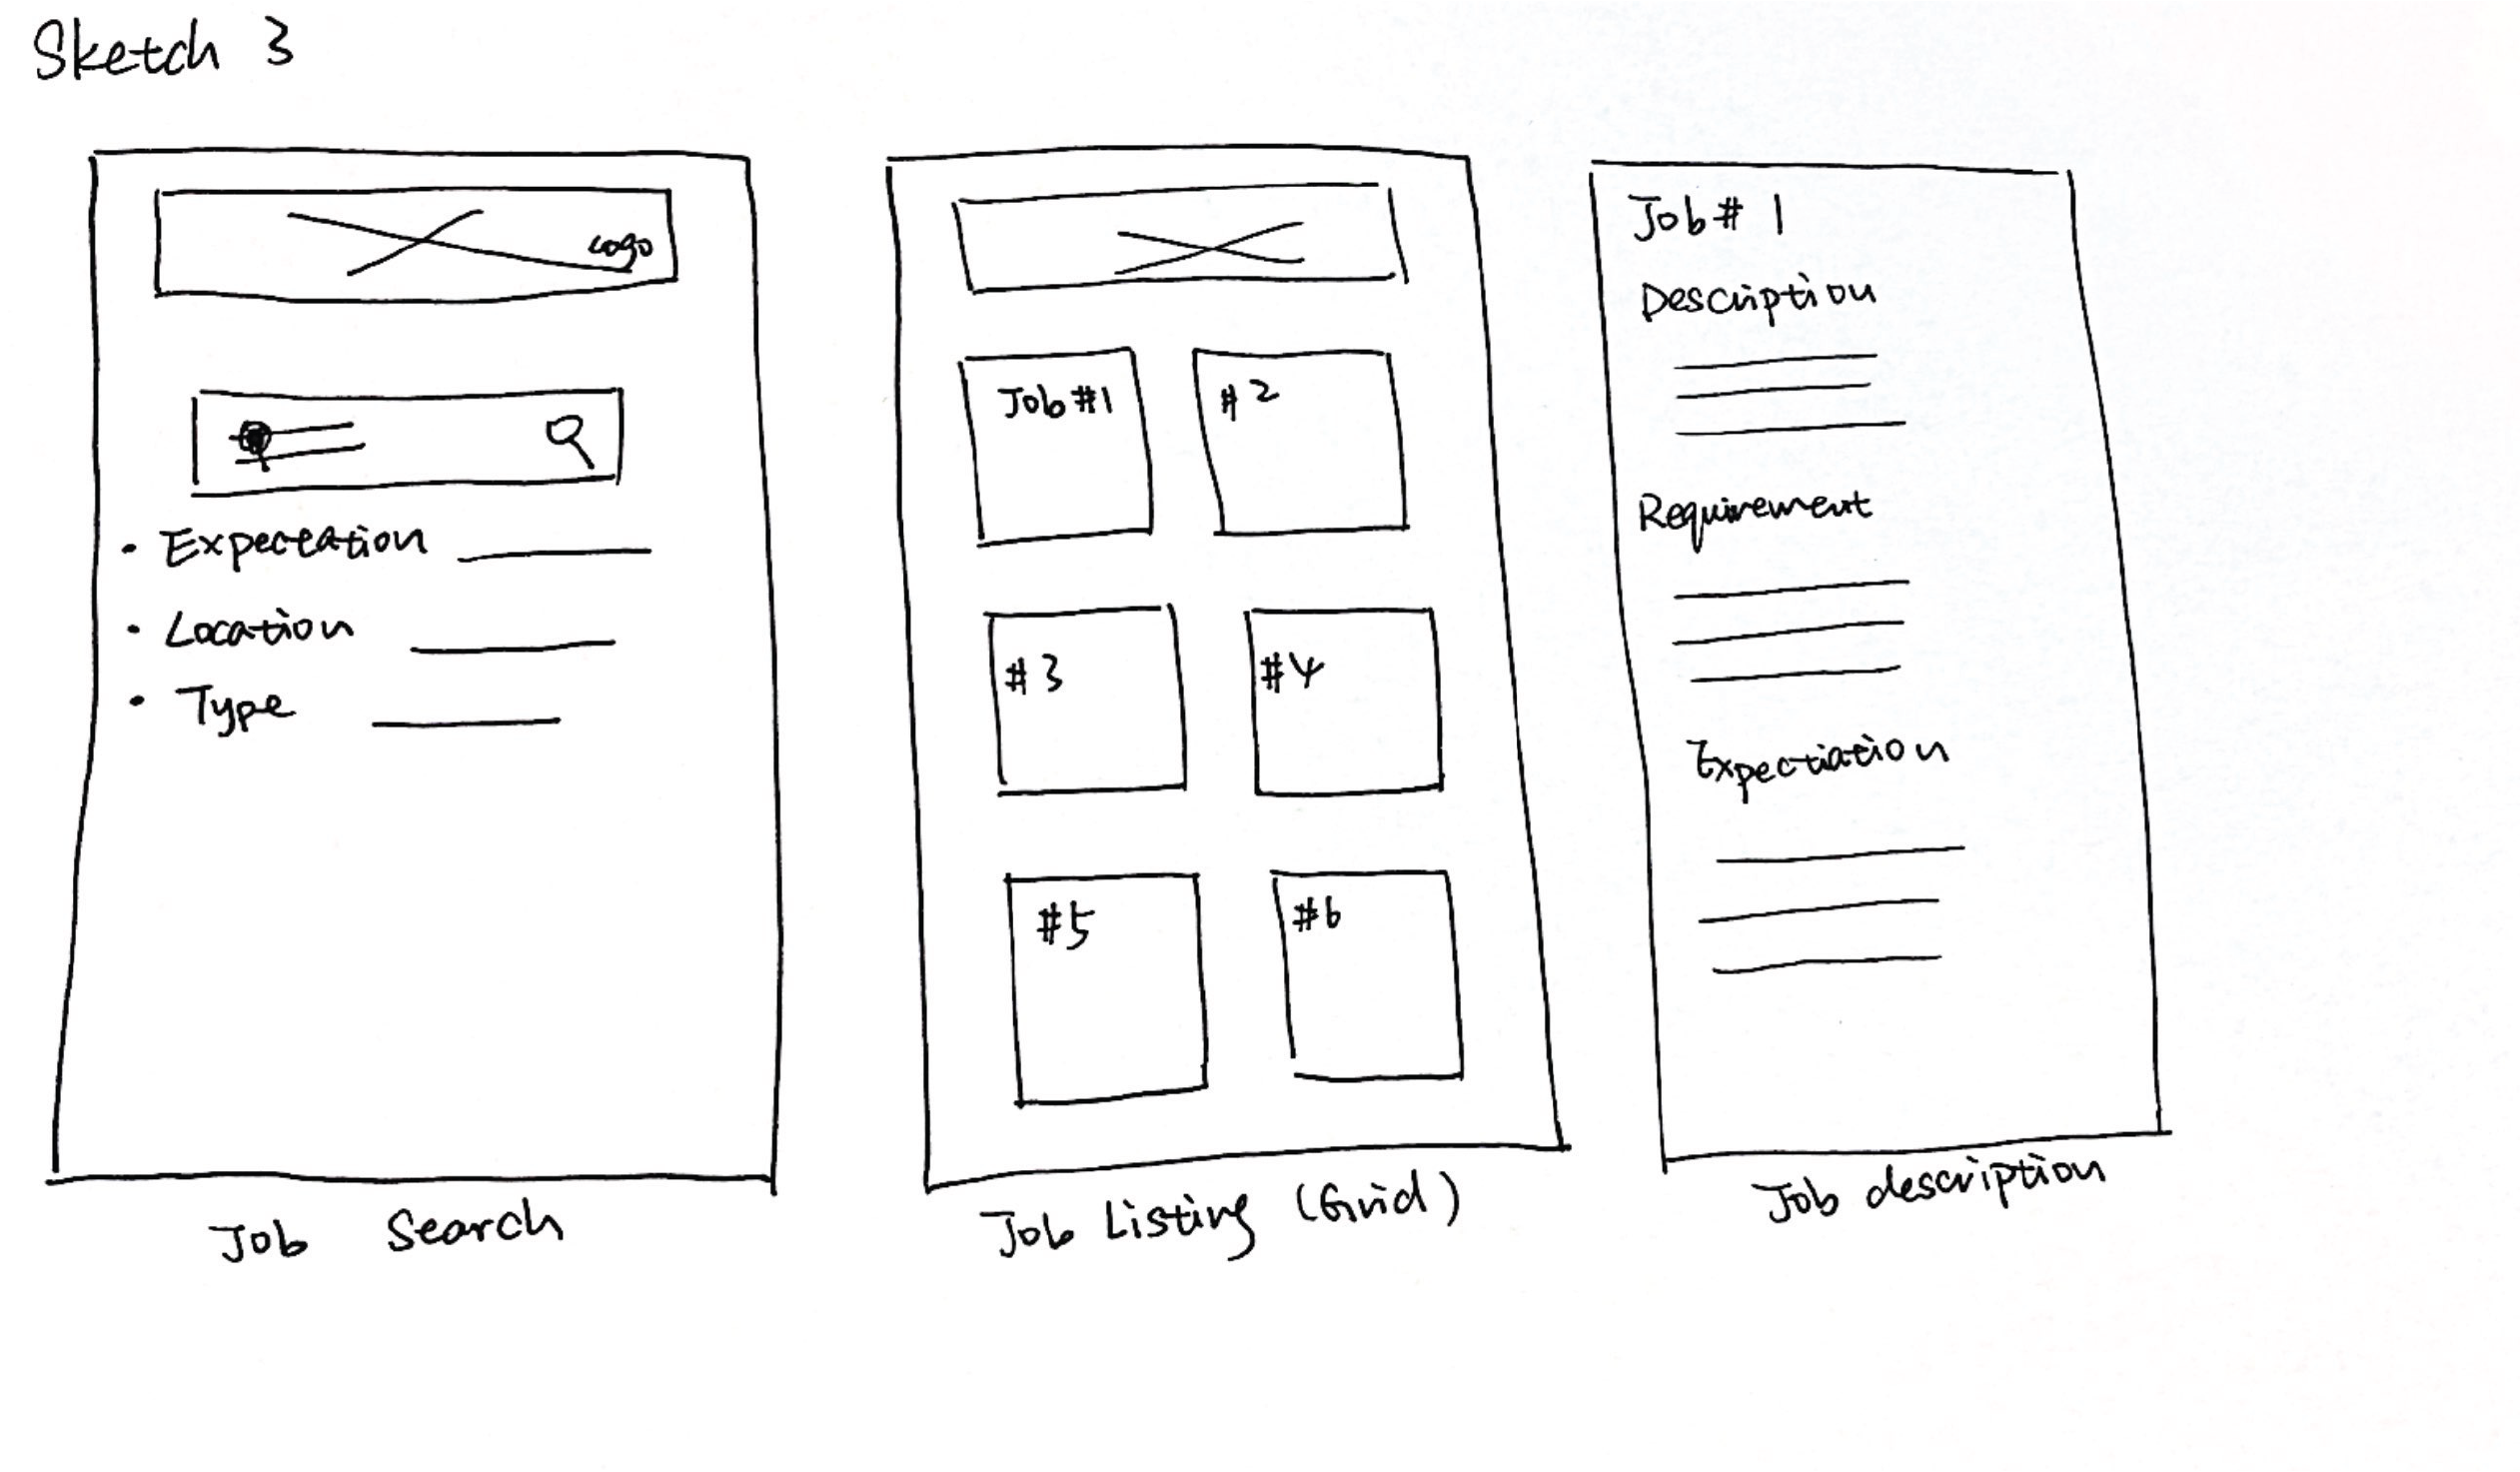 Sketch 3
Logo
• Expectation
• Location
• Type
Job Search
Job #1
#2
#3
#4
#5
#6
Job Listing (Grid)
Job # 1
Description
Requirement
Expectiation
Job description